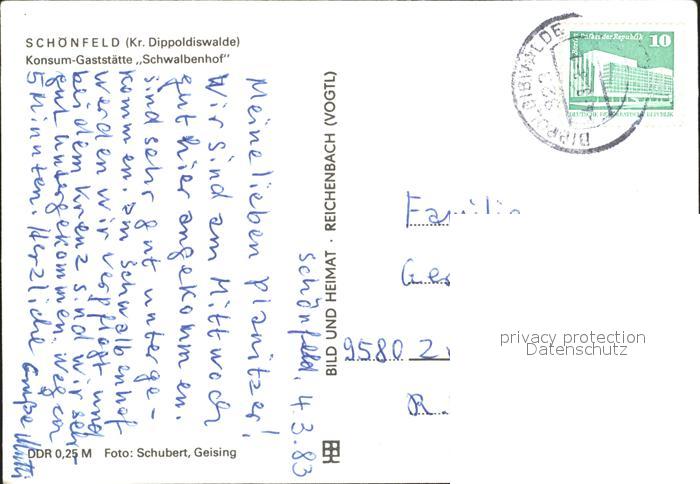 SCHÖNFELD (Kr. Dippoldiswalde)
Konsum-Gaststätte „Schwalbenhof“
schönfeld, 4.3.83
Meine lieben planitzer!
Wir sind am Mittwoch
gut hier angekommen.
sind sehr gut unterge-
kommen. Im Schwalbenhof
werden wir verpflegt und
bei dem Kranz sind wir sehr
gut untergekommen. Weg ca
5 Minuten. Herzliche Grüße Mutti
DDR 0,25 M Foto: Schubert, Geising
BILD UND HEIMAT · REICHENBACH (VOGTL)
DIPPOLDISWALDE
823
Berlin, Palast der Republik
10
DEUTSCHE DEMOKRATISCHE REPUBLIK
Familie
Ge
9580 Z
R
privacy protection
Datenschutz